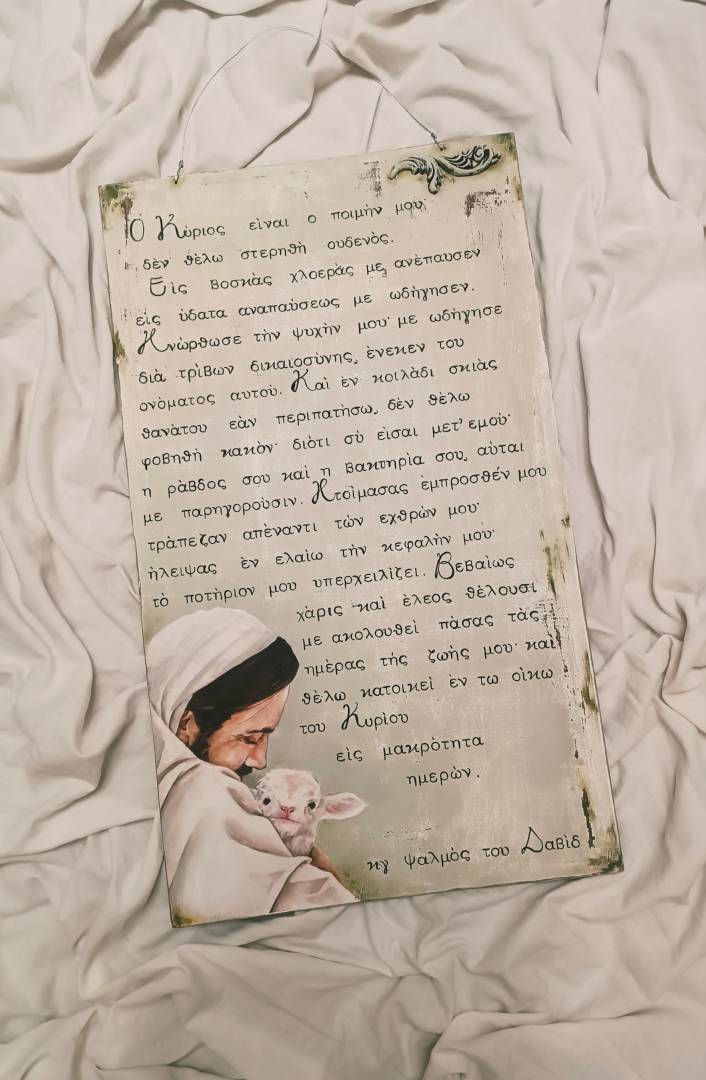 Ὁ Κὺριος εὶναι ο ποιμὴν μου·
δὲν θὲλω στερηθὴ ουδενὸς.
Εὶς βοσκὰς χλοερὰς με ανὲπαυσεν
εὶς ὺδατα αναπαὺσεως με ωδὴγησεν.
Ηνὼρθωσε τὴν ψυχὴν μου· με ωδὴγησε
διὰ τρὶβων δικαιοσὺνης, ὲνεκεν του
ονὸματος αυτοὺ. Καὶ ὲν κοιλὰδι σκιὰς
θανὰτου εὰν περιπατὴσω, δὲν θὲλω
φοβηθὴ κακὸν· διὸτι σὺ εὶσαι μετ' εμοὺ·
η ρὰβδος σου καὶ η βακτηρὶα σου, αὺται
με παρηγοροὺσιν. Ητοὶμασας ὲμπροσθέν μου
τρὰπεζαν απὲναντι τὼν εχθρὼν μου·
ὴλειψας ὲν ελαὶω τὴν κεφαλὴν μου·
τὸ ποτὴριον μου υπερχειλὶζει. Βεβαὶως
χὰρις καὶ ὲλεος θὲλουσι
με ακολουθεὶ πὰσας τὰς
ημὲρας τὴς ζωὴς μου· καὶ
θὲλω κατοικεὶ ὲν τω οὶκω
του Κυρὶου
εὶς μακρὸτητα
ημερὼν.
κγ ψαλμὸς του Δαβὶδ